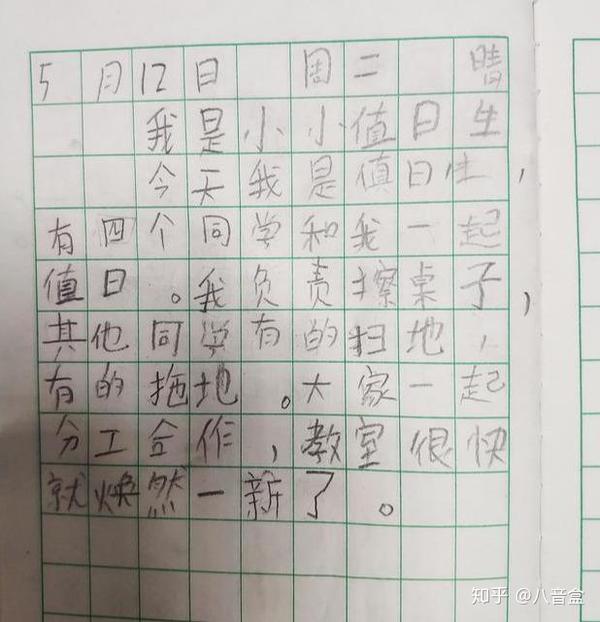 5月12日 周二 晴
我是小小值日生
今天我是值日生，
有四个同学和我一起
值日。我负责擦桌子，
其他同学有的扫地，
有的拖地。大家一起
分工合作，教室很快
就焕然一新了。
知乎 @八音盒